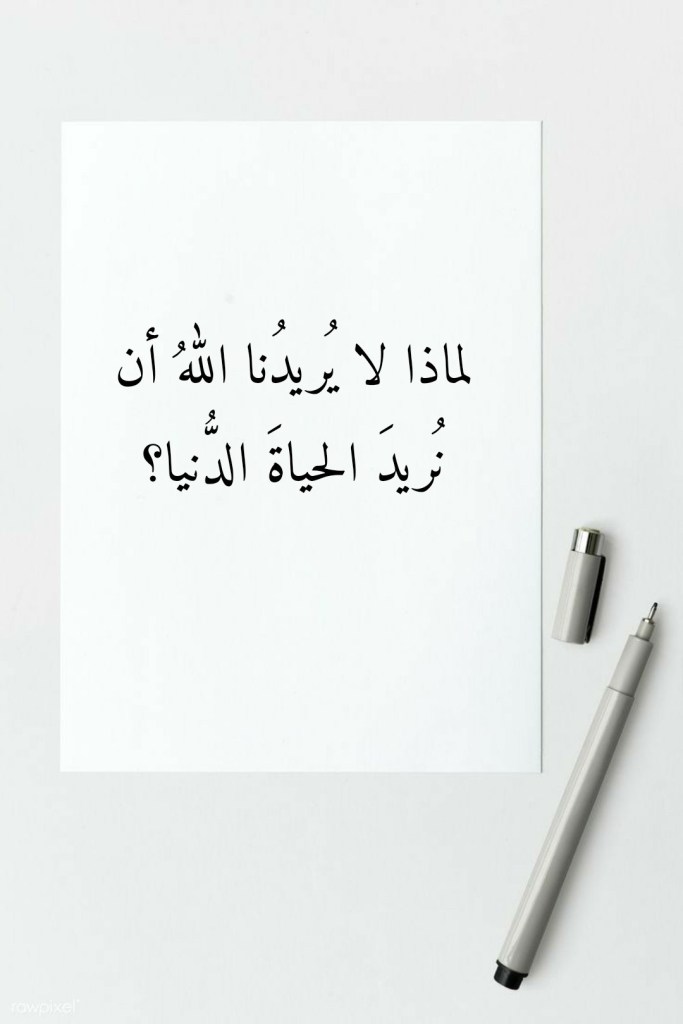 لماذا لا يُريدُنا اللهُ أن
نُريدَ الحياةَ الدُّنيا؟
rawpixel